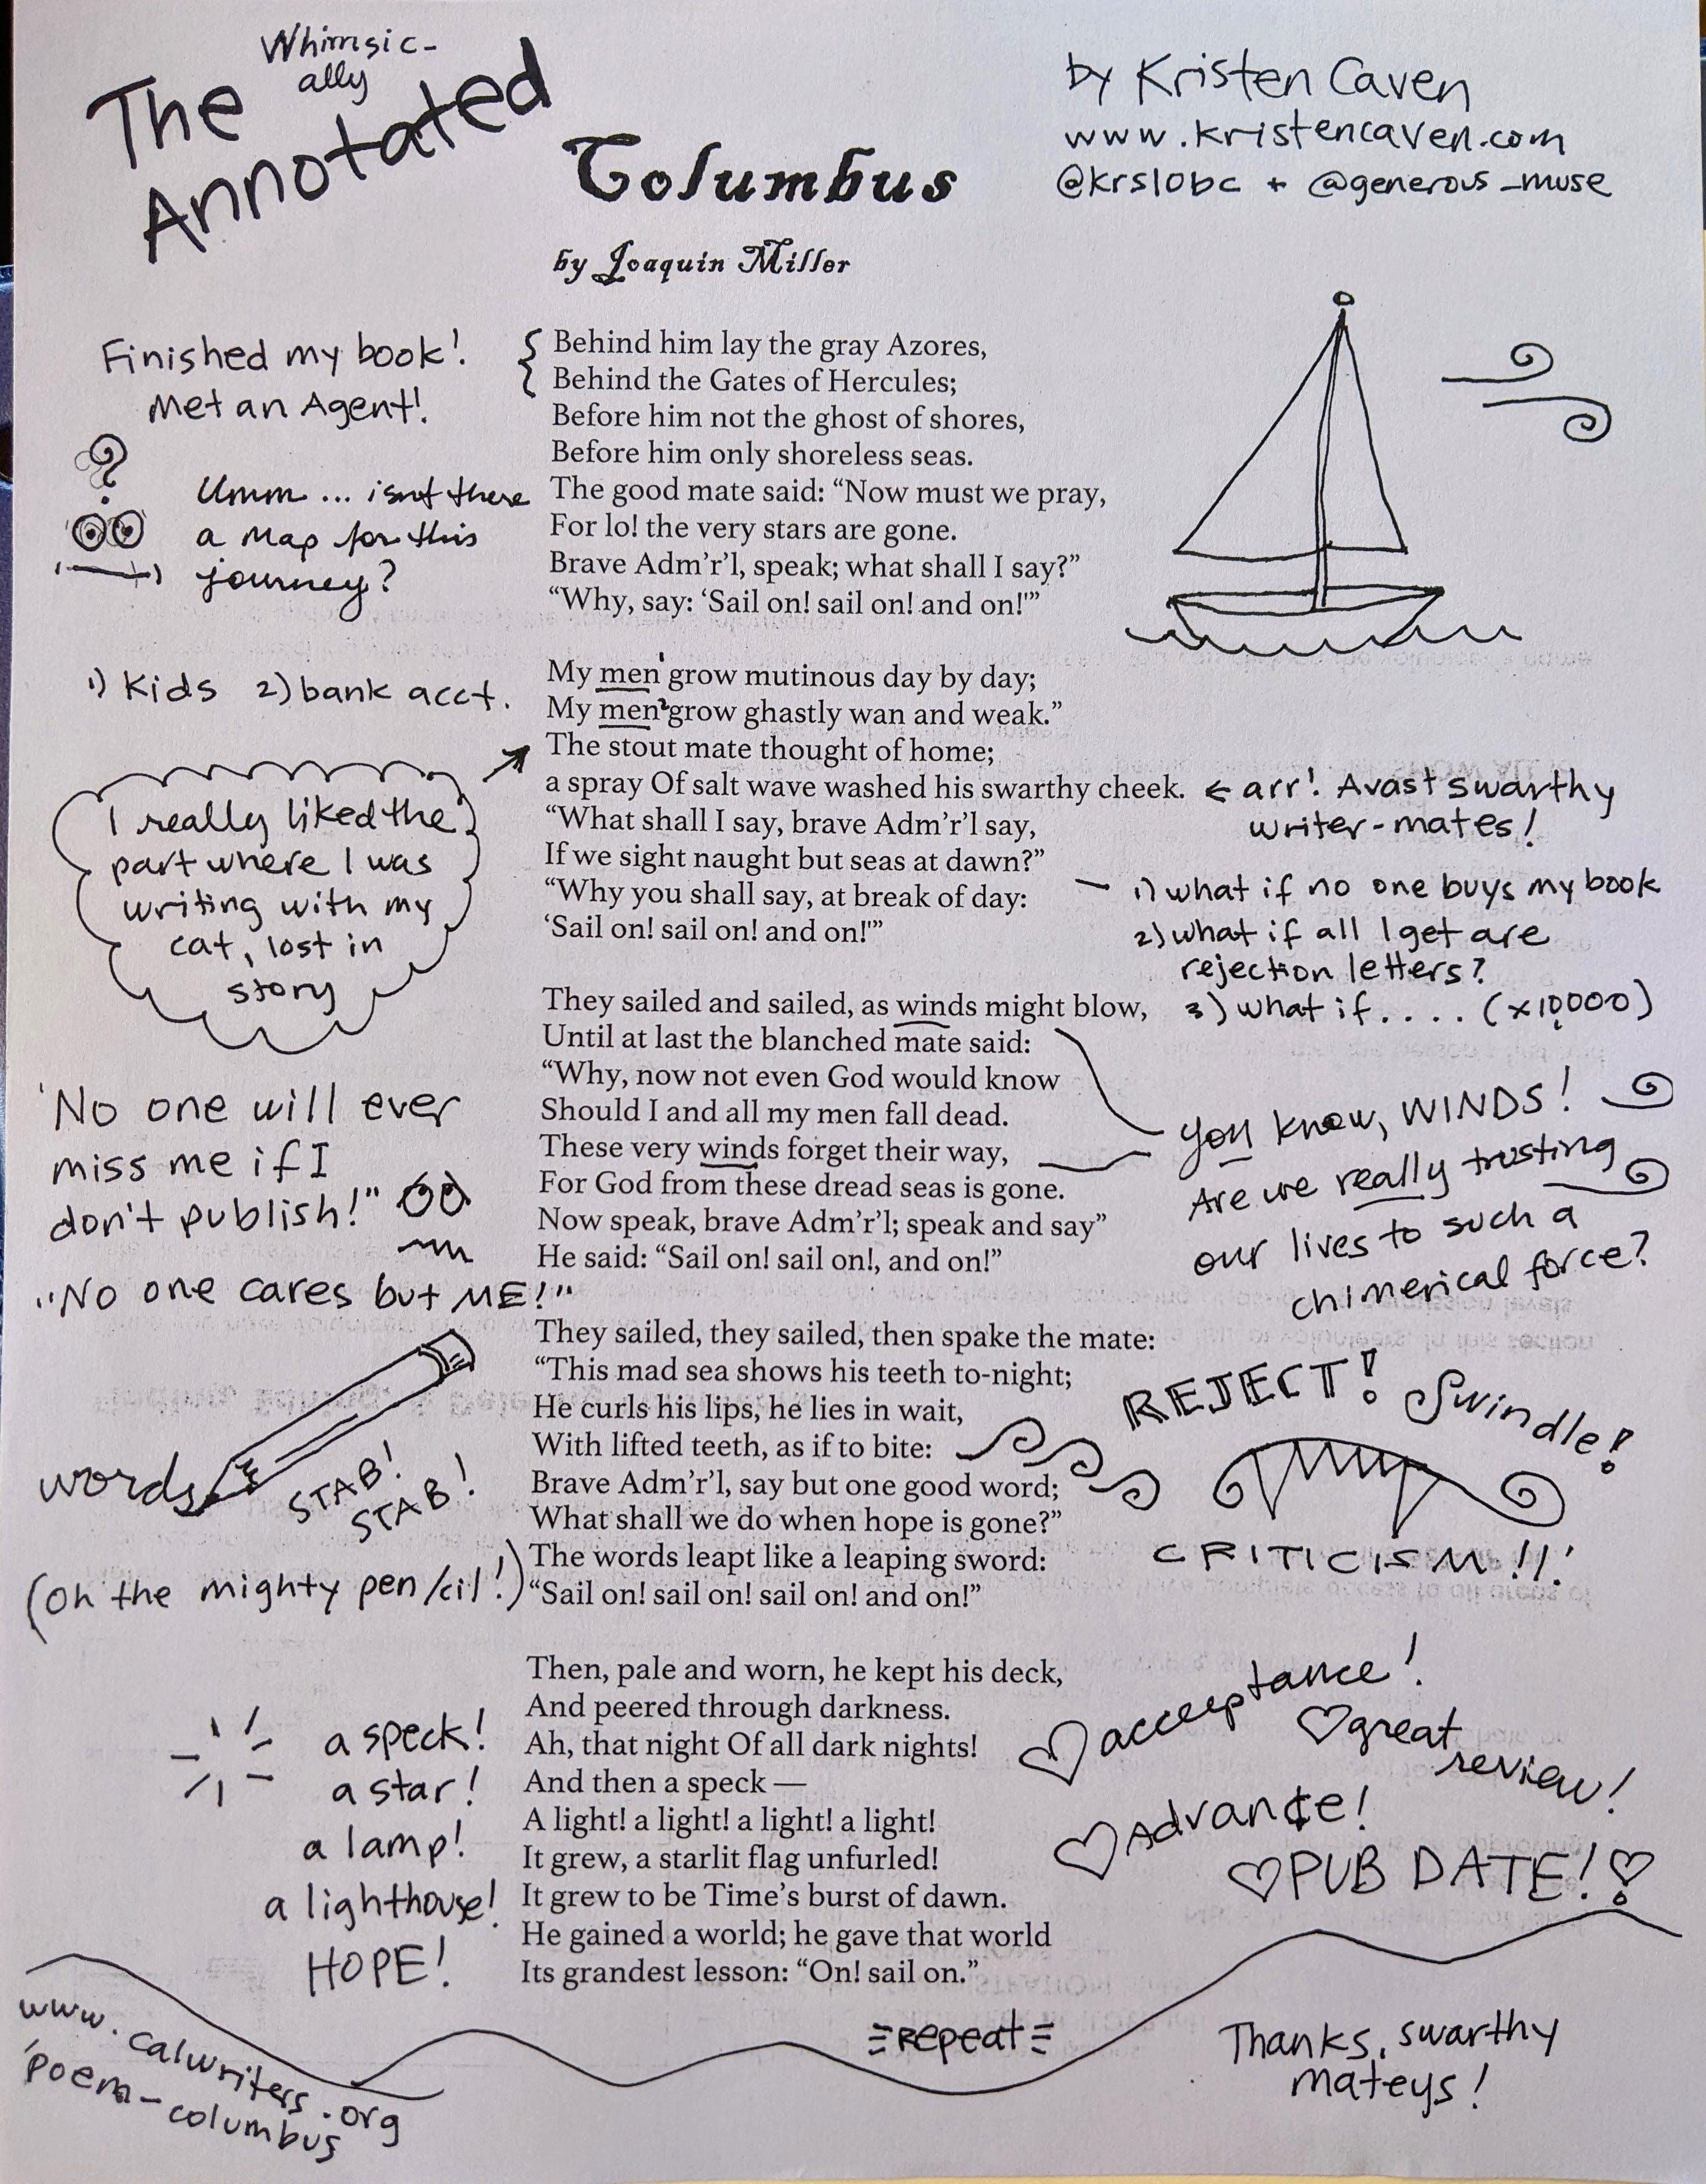 The Whimsic-
ally
Annotated
Columbus
by Joaquin Miller
by Kristen Caven
www.kristencaven.com
@krs10bc + @generous_muse
Finished my book!
Met an Agent!
Behind him lay the gray Azores,
Behind the Gates of Hercules;
Before him not the ghost of shores,
Before him only shoreless seas.
?
Umm... isn't there
a map for this
journey?
The good mate said: “Now must we pray,
For lo! the very stars are gone.
Brave Adm'r'l, speak; what shall I say?”
“Why, say: ‘Sail on! sail on! and on!'”
1) Kids 2) bank acct.
My men¹ grow mutinous day by day;
My men² grow ghastly wan and weak.”
The stout mate thought of home;
a spray Of salt wave washed his swarthy cheek.
“What shall I say, brave Adm'r'l say,
If we sight naught but seas at dawn?”
“Why you shall say, at break of day:
‘Sail on! sail on! and on!'”
I really liked the
part where I was
writing with my
cat, lost in
story
← arr! Avast swarthy
writer-mates!
1) what if no one buys my book
2) what if all I get are
rejection letters?
3) what if.... (x10,000)
They sailed and sailed, as winds might blow,
Until at last the blanched mate said:
“Why, now not even God would know
Should I and all my men fall dead.
These very winds forget their way,
For God from these dread seas is gone.
Now speak, brave Adm'r'l; speak and say”
He said: “Sail on! sail on!, and on!”
'No one will ever
miss me if I
don't publish!"
"No one cares but ME!"
you know, WINDS!
Are we really trusting
our lives to such a
chimerical force?
They sailed, they sailed, then spake the mate:
“This mad sea shows his teeth to-night;
He curls his lips, he lies in wait,
With lifted teeth, as if to bite:
Brave Adm'r'l, say but one good word;
What shall we do when hope is gone?”
The words leapt like a leaping sword:
“Sail on! sail on! sail on! and on!”
words
STAB!
STAB!
(Oh the mighty pen/cil!)
REJECT! Swindle!
CRITICISM!!!
Then, pale and worn, he kept his deck,
And peered through darkness.
Ah, that night Of all dark nights!
And then a speck —
A light! a light! a light! a light!
It grew, a starlit flag unfurled!
It grew to be Time's burst of dawn.
He gained a world; he gave that world
Its grandest lesson: “On! sail on.”
a speck!
a star!
a lamp!
a lighthouse!
HOPE!
♡ acceptance!
♡ great
review!
♡ Advan¢e!
♡ PUB DATE! ♡
www.calwriters.org
poem-columbus
=repeat=
Thanks, swarthy
mateys!